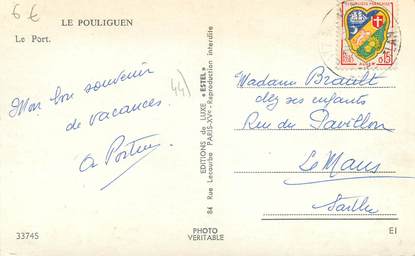 6 €
LE POULIGUEN
Le Port.
44)
Mon bon souvenir
de vacances.
EDITIONS de LUXE "ESTEL"
84 Rue Lecourbe PARIS-XVᵉ - Reproduction interdite
REPUBLIQUE FRANÇAISE
0,15
Madame Brault
chez ses enfants
Rue du Pavillon
Le Mans
Sarthe
33745
PHOTO
VERITABLE
EI